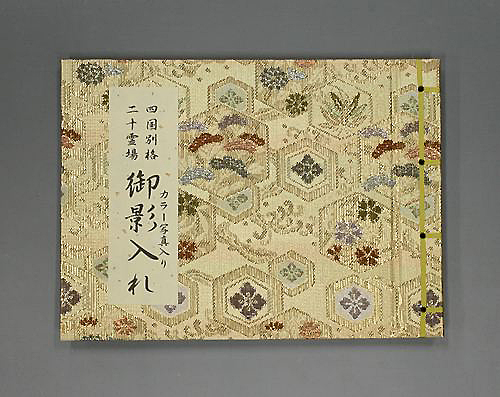 四国別格
二十霊場
御影入札
カラー写真入り